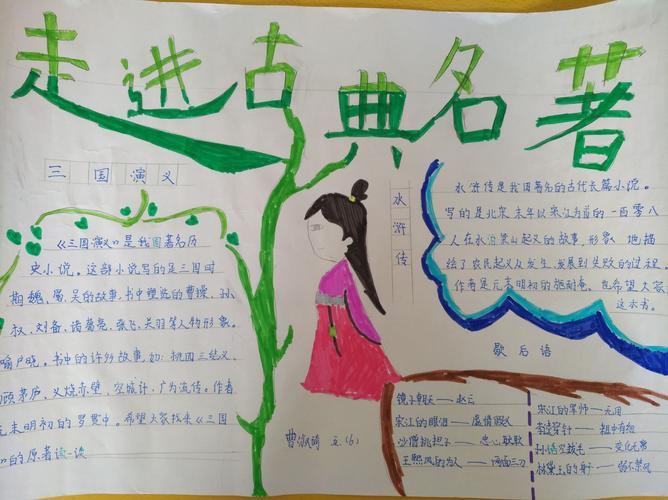 走进古典名著
三国演义
《三国演义》是我国著名历
史小说。这部小说写的是三国时
期魏、蜀、吴的故事,书中塑造的曹操、孙
权、刘备、诸葛亮、张飞、关羽等人物形象。
喻户晓。书中的许多故事,如:桃园三结义、
顾茅庐、火烧赤壁、空城计、广为流传。作者
元末明初的罗贯中。希望大家找来《三国
的原著读一读
水浒传
水浒传是我国著名的古代长篇小说。
写的是北宋末年以宋江为首的一百零八
人在水泊梁山起义的故事,形象地描
绘了农民起义从发生、发展到失败的过程。
作者是元末明初的施耐庵。也希望大家
歇后语
镜子朝天——
宋江的眼泪——虚情假义
沙僧挑担子——忠心耿耿
王熙凤的为人——两面三刀
宋江的军师——无用
李逵穿针——粗中有细
孙悟空拔毛——变化无常
林黛玉的身子——弱不禁风
曹淑琦 五(6)